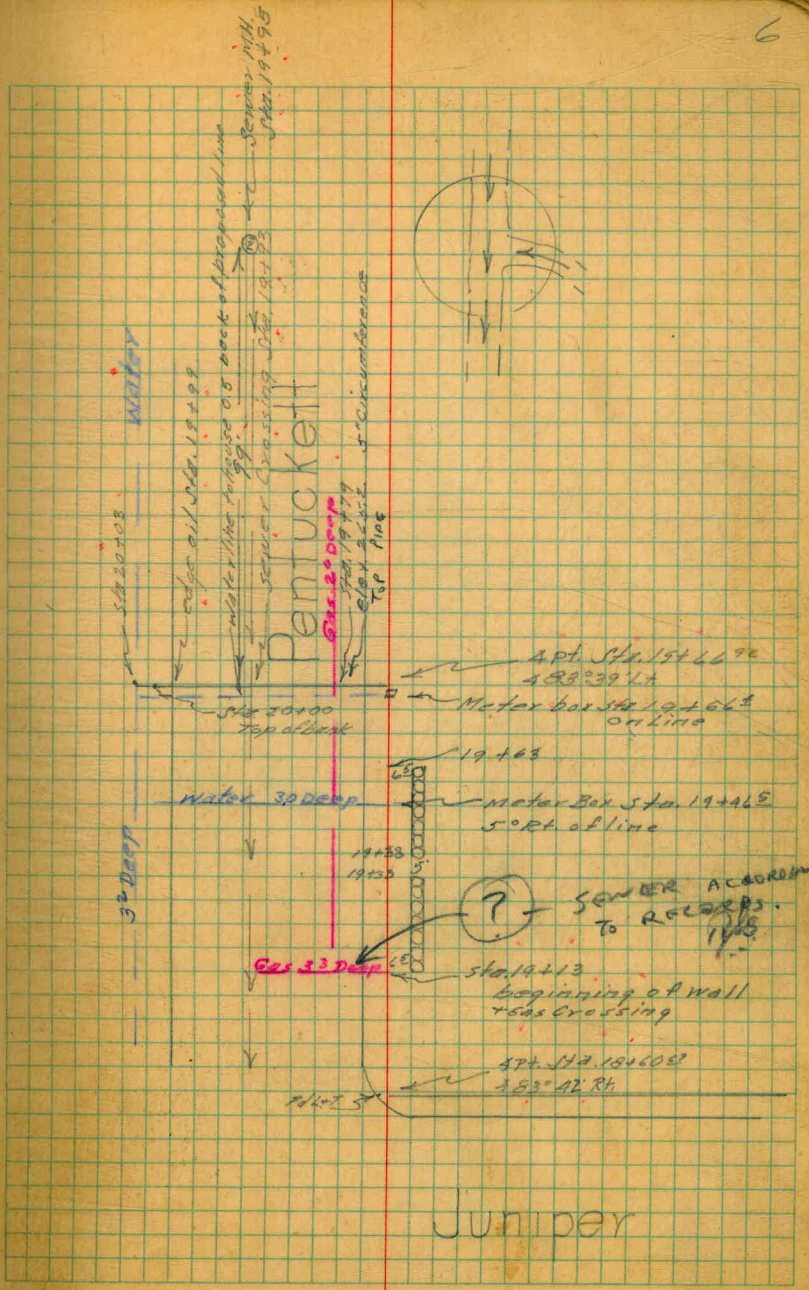 6
Sewer M.H.
Sta. 19+95
MH
Water
Sta 20+03
edge oil Sta. 19+99
Water line to house 0.5 back of proposed line
99'
Sewer Crossing Sta. 19+93
Pentuckett
Gas 2° Deep
Sta. 19+79
Top Pipe
5" Circumference
∆pt. Sta. 19+66
∆83°39' Lt
Meter box sta. 19+66
On Line
Sta 20+00
Top of bank
19+63
Water 3.0 Deep
Meter Box sta. 19+46⁵
5° Rt. of line
19+38
19+33
3² Deep
?
SEWER ACCORDING
TO RECORDS.
Gas 3³ Deep
Sta. 19+13
beginning of wall
+Gas Crossing
∆pt. Sta. 18+60
∆83°42' Rt.
Juniper